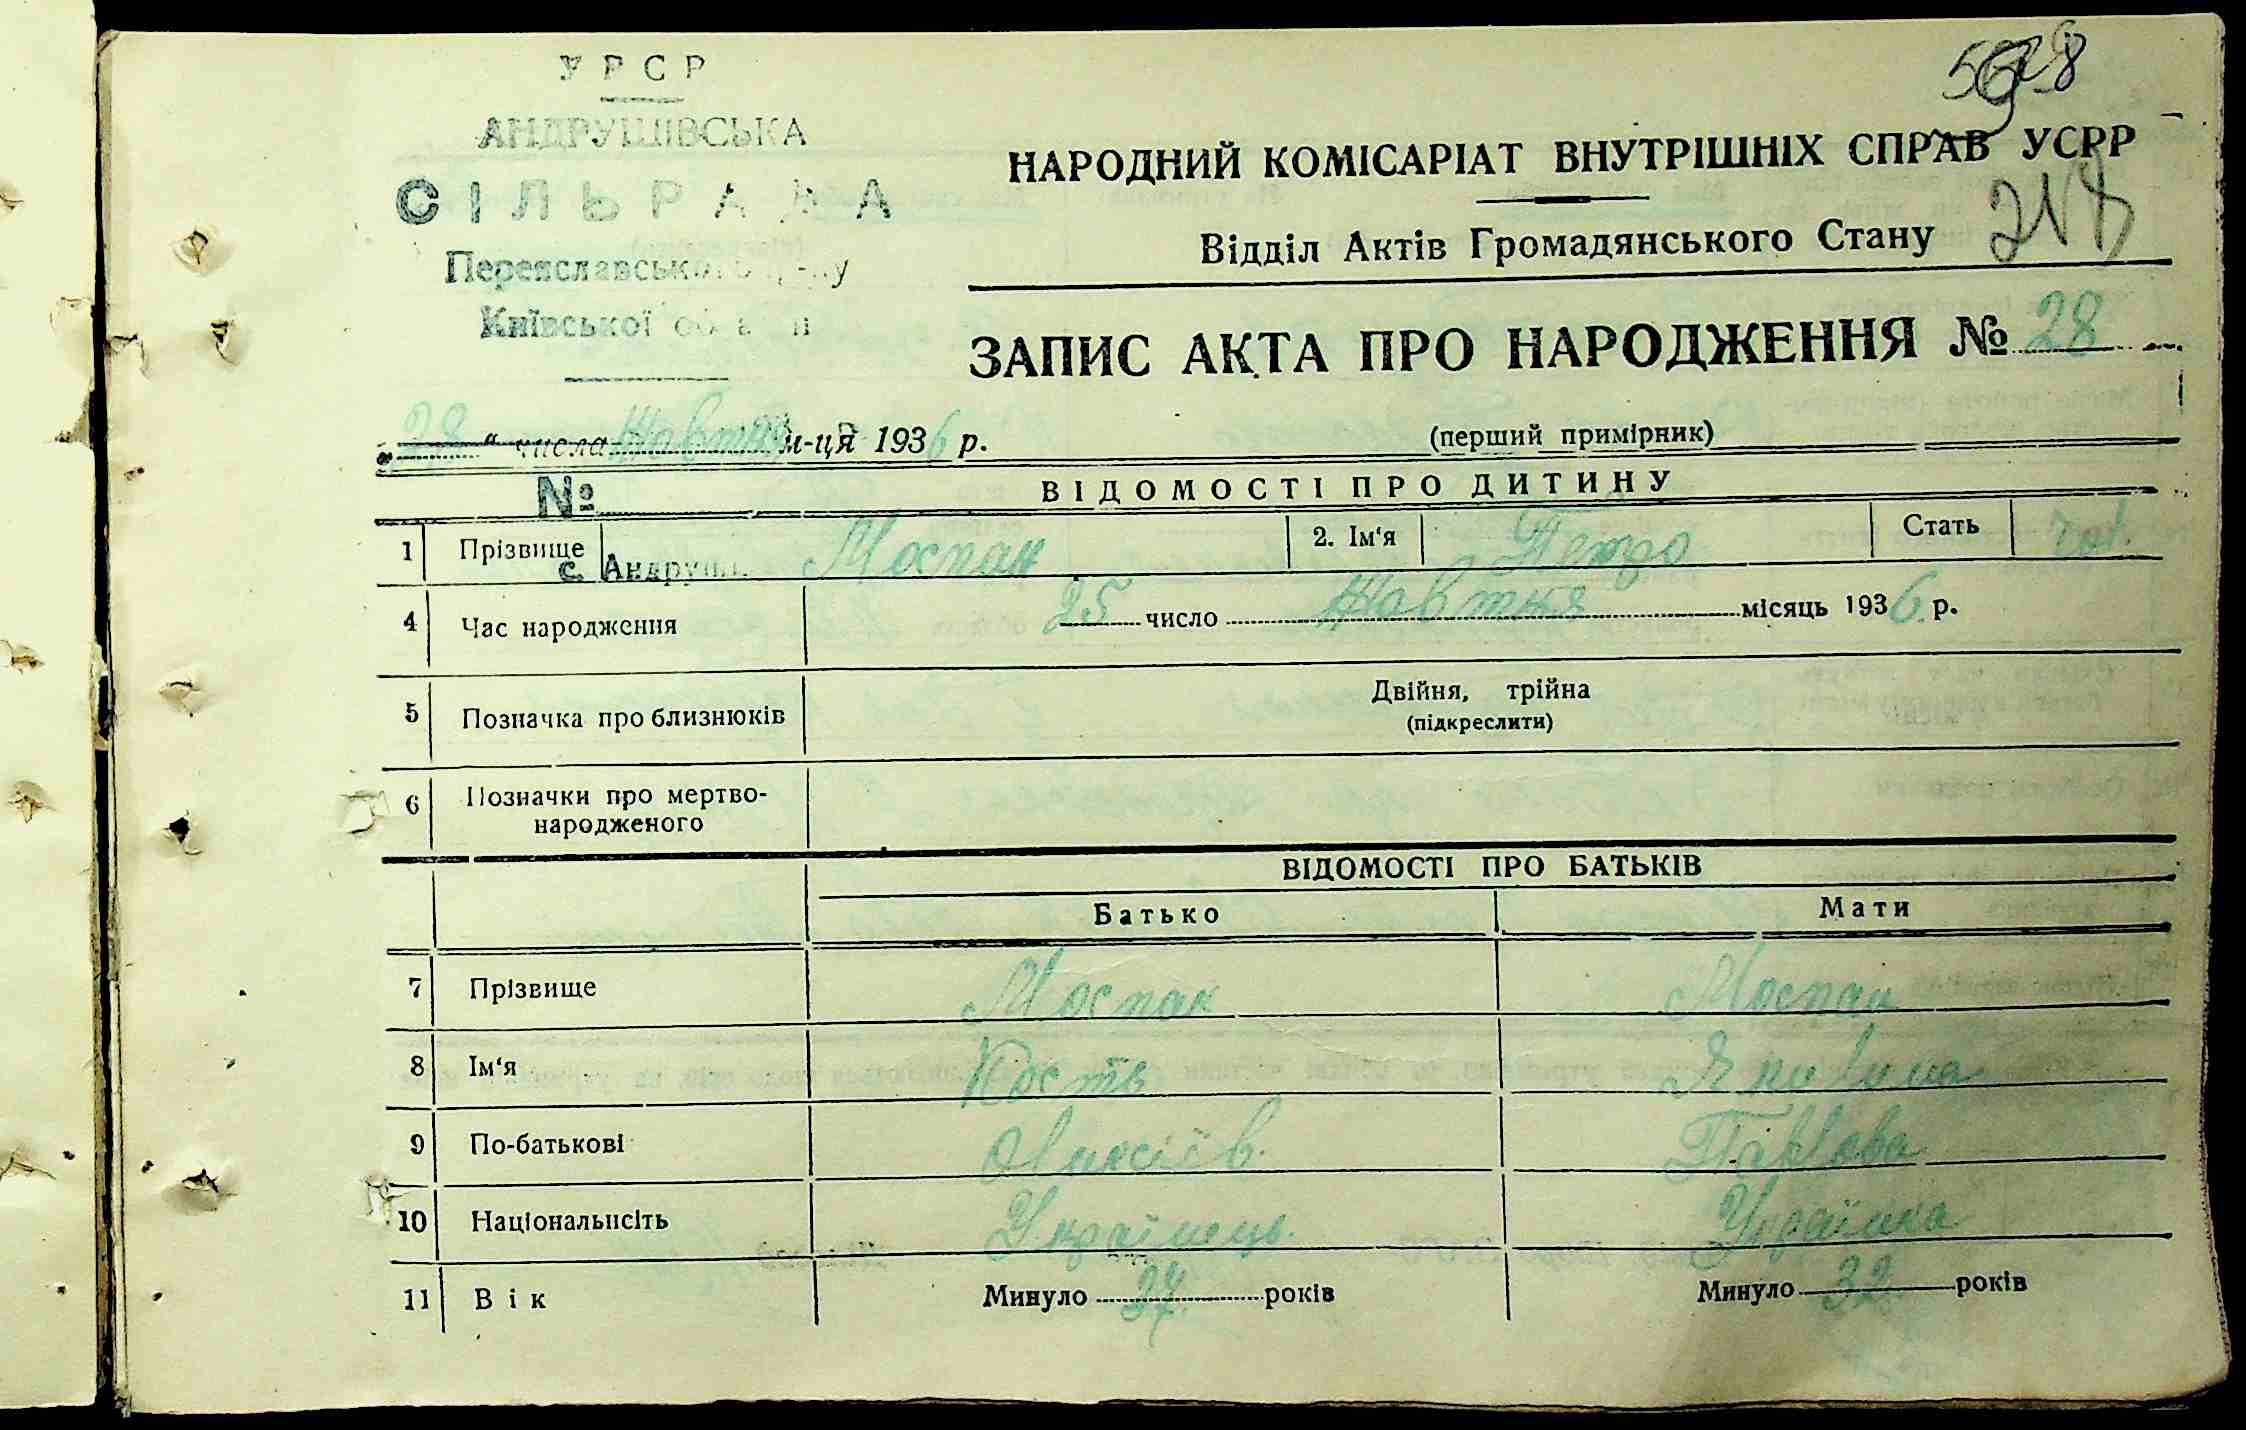 УРСР
АНДРУШІВСЬКА
СІЛЬРАДА
Переяславського р-ну
Київської області
5928
НАРОДНИЙ КОМІСАРІАТ ВНУТРІШНІХ СПРАВ УСРР
Відділ Актів Громадянського Стану
ЗАПИС АКТА ПРО НАРОДЖЕННЯ № 28
„28“ числа Жовтня м-ця 1936 р.
(перший примірник)
№
ВІДОМОСТІ ПРО ДИТИНУ
1 Прізвище Моспан 2. Ім'я Петро Стать чол
с. Андруш
4 Час народження 25 число Жовтня місяць 1936 р.
5 Позначка про близнюків Двійня, трійна
(підкреслити)
6 Позначки про мертво-
народженого
ВІДОМОСТІ ПРО БАТЬКІВ
Батько Мати
7 Прізвище Моспан Моспан
8 Ім'я Кость
9 По-батькові Олексіїв. Павлова
10 Національнсіть Українець. Українка
11 Вік Минуло 37 років Минуло 32 років